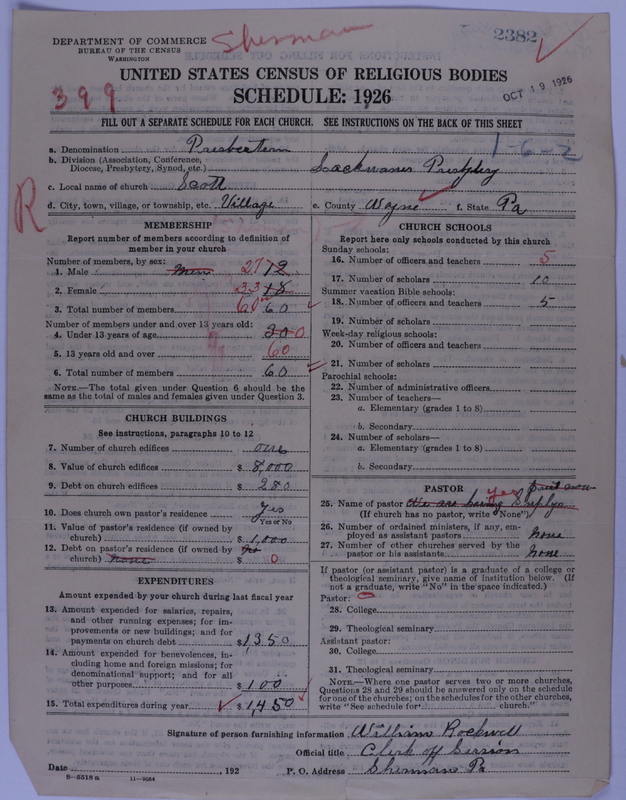 DEPARTMENT OF COMMERCE
BUREAU OF THE CENSUS
WASHINGTON
Sherman
2382
UNITED STATES CENSUS OF RELIGIOUS BODIES
SCHEDULE: 1926
399
OCT 19 1926
FILL OUT A SEPARATE SCHEDULE FOR EACH CHURCH. SEE INSTRUCTIONS ON THE BACK OF THIS SHEET
1-6-2
a. Denomination Presbeterin
b. Division (Association, Conference, Diocese, Presbytery, Synod, etc.) Lackwana Presbytery
c. Local name of church Scott
R
d. City, town, village, or township, etc. Village e. County Wayne f. State Pa
MEMBERSHIP
Report number of members according to definition of
member in your church
Number of members, by sex:
1. Male 27 12
2. Female 33 18
3. Total number of members 60 60
Number of members under and over 13 years old:
4. Under 13 years of age 30 0
5. 13 years old and over 60
6. Total number of members 60
NOTE.—The total given under Question 6 should be the
same as the total of males and females given under Question 3.
CHURCH BUILDINGS
See instructions, paragraphs 10 to 12
7. Number of church edifices one
8. Value of church edifices $ 8,000
9. Debt on church edifices $ 280
10. Does church own pastor's residence Yes
Yes or No
11. Value of pastor's residence (if owned by
church) $ 1,000
12. Debt on pastor's residence (if owned by no
church) none $ 0
EXPENDITURES
Amount expended by your church during last fiscal year
13. Amount expended for salaries, repairs,
and other running expenses; for im-
provements or new buildings; and for
payments on church debt $ 1350
14. Amount expended for benevolences, in-
cluding home and foreign missions; for
denominational support; and for all
other purposes $ 100
15. Total expenditures during year $ 1450
CHURCH SCHOOLS
Report here only schools conducted by this church
Sunday schools:
16. Number of officers and teachers 5
17. Number of scholars 10
Summer vacation Bible schools:
18. Number of officers and teachers 5
19. Number of scholars
Week-day religious schools:
20. Number of officers and teachers
21. Number of scholars
Parochial schools:
22. Number of administrative officers
23. Number of teachers—
a. Elementary (grades 1 to 8)
b. Secondary
24. Number of scholars—
a. Elementary (grades 1 to 8)
b. Secondary
PASTOR yes
25. Name of pastor We are having
(If church has no pastor, write "None")
26. Number of ordained ministers, if any, em-
ployed as assistant pastors none
27. Number of other churches served by the
pastor or his assistants none
If pastor (or assistant pastor) is a graduate of a college or
theological seminary, give name of institution below. (If
not a graduate, write "No" in the space indicated.)
Pastor:
28. College
29. Theological seminary
Assistant pastor:
30. College
31. Theological seminary
NOTE.—Where one pastor serves two or more churches,
Questions 28 and 29 should be answered only on the schedule
for one of the churches; on the schedules for the other churches,
write "See schedule for church."
Signature of person furnishing information William Rockwell
Official title Clerk off Session
Date , 192 P. O. Address Shermans Pa
8-5518a 11-9084